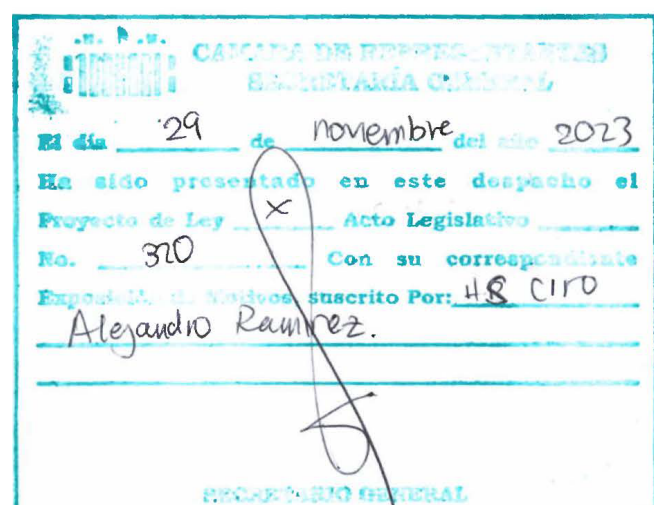 CAMARA DE REPRESENTANTES
SECRETARÍA GENERAL
El día 29 de noviembre del año 2023
Ha sido presentado en este despacho el
Proyecto de Ley X Acto Legislativo
No. 320 Con su correspondiente
Exposición de Motivos, suscrito Por: HR Ciro
Alejandro Ramirez.
SECRETARIO GENERAL